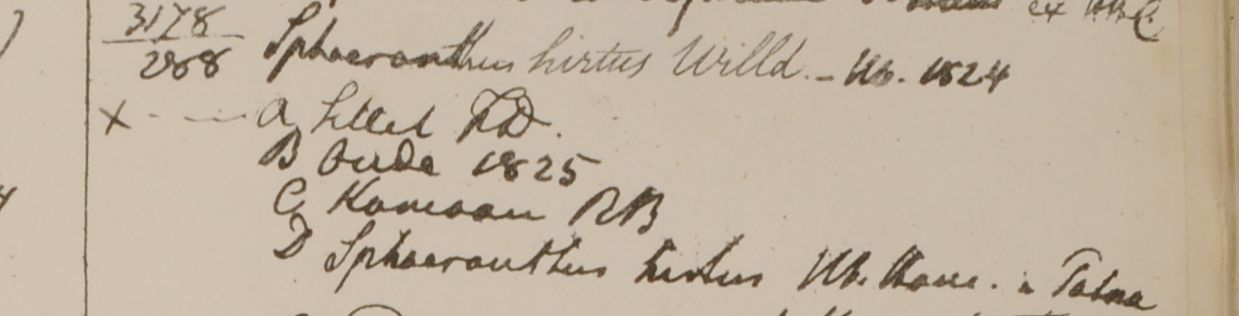 ex
3178
288 Sphaeranthus hirtus Willd. - Hb. 1824
x - - - A, Sillet FD.
B Oude 1825
C, Kamoan RB
D Sphaeranthus hirtus Hb. Ham. a Patna